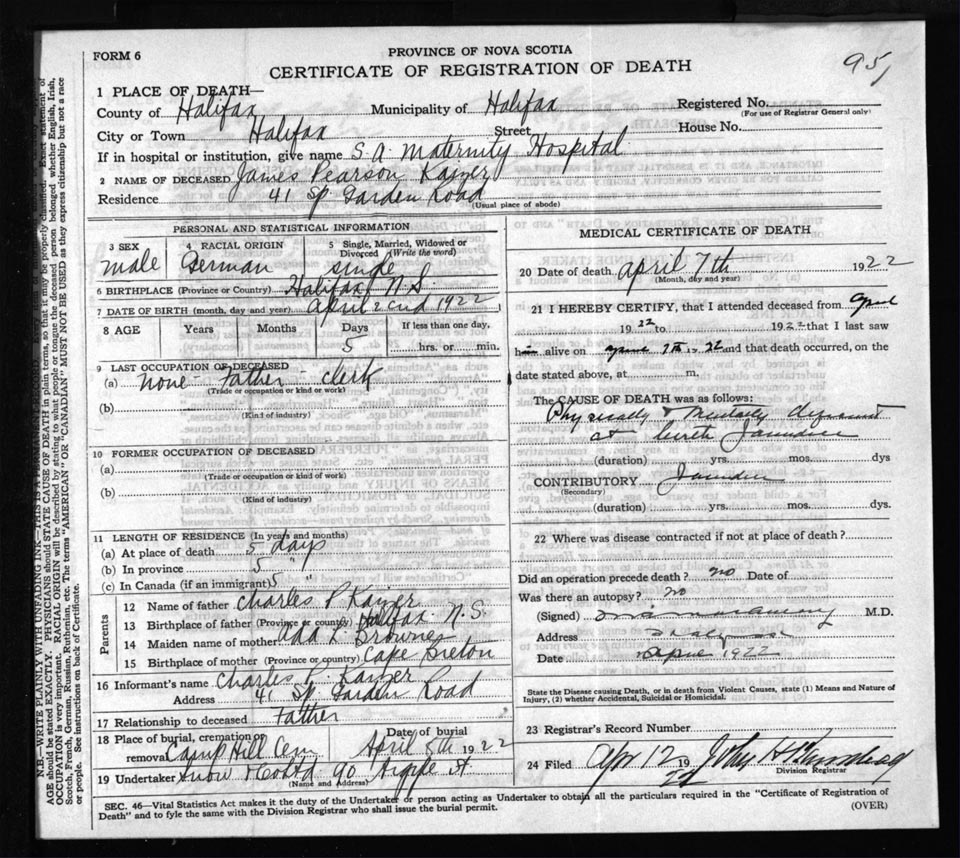 FORM 6
PROVINCE OF NOVA SCOTIA
CERTIFICATE OF REGISTRATION OF DEATH
95
1 PLACE OF DEATH—
County of Halifax Municipality of Halifax Registered No.
(For use of Registrar General only)
City or Town Halifax Street House No.
If in hospital or institution, give name S. A. Maternity Hospital
2 NAME OF DECEASED James Pearson Kayzer
Residence 41 Sp Garden Road
(Usual place of abode)
PERSONAL AND STATISTICAL INFORMATION
3 SEX 4 RACIAL ORIGIN 5 Single, Married, Widowed or Divorced (Write the word)
male German single
6 BIRTHPLACE (Province or Country) Halifax N.S.
7 DATE OF BIRTH (month, day and year) April 2cnd 1922
8 AGE Years Months Days If less than one day,
5 hrs. or min.
9 LAST OCCUPATION OF DECEASED
(a) none Father - clerk
(Trade or occupation or kind or work)
(b)
(Kind of industry)
10 FORMER OCCUPATION OF DECEASED
(a)
(Trade or occupation or kind or work)
(b)
(Kind of industry)
11 LENGTH OF RESIDENCE (In years and months)
(a) At place of death 5 days
(b) In province 5 "
(c) In Canada (if an immigrant) 5 "
Parents
12 Name of father Charles P Kayzer
13 Birthplace of father (Province or country) Halifax N.S.
14 Maiden name of mother Add L. Browne
15 Birthplace of mother (Province or country) Cape Breton
16 Informant's name Charles Kayzer
Address 41 Sp. Garden Road
17 Relationship to deceased Father
18 Place of burial, cremation or removal Camp Hill Cem Date of burial April 8th 1922
19 Undertaker Snow 90 Argyle st
(Name and Address)
MEDICAL CERTIFICATE OF DEATH
20 Date of death April 7th 1922
(Month, day and year)
21 I HEREBY CERTIFY, that I attended deceased from April
1922 to 1922 that I last saw
him alive on April 7th 1922 and that death occurred, on the
date stated above, at m.
The CAUSE OF DEATH was as follows:
Physically & Mentally
at birth Jaundice
(duration) yrs. mos. dys
CONTRIBUTORY Jaundice
(Secondary)
(duration) yrs. mos. dys.
22 Where was disease contracted if not at place of death?
Did an operation precede death? no Date of
Was there an autopsy? no
(Signed) M.D.
Address
Date April 1922
State the Disease causing Death, or in death from Violent Causes, state (1) Means and Nature of
Injury, (2) whether Accidental, Suicidal or Homicidal.
23 Registrar's Record Number
24 Filed Apr 12 1922 John H
Division Registrar
SEC. 46—Vital Statistics Act makes it the duty of the Undertaker or person acting as Undertaker to obtain all the particulars required in the "Certificate of Registration of
Death" and to fyle the same with the Division Registrar who shall issue the burial permit.
(OVER)
N.B.—WRITE PLAINLY WITH UNFADING INK—THIS IS A PERMANENT
AGE should be stated EXACTLY. PHYSICIANS should STATE CAUSE OF DEATH in plain terms, so that it may be properly classified. Exact statement of
OCCUPATION is very important. RACIAL ORIGIN will be described by stating to what people or tongue the deceased person belonged whether English, Irish,
Scotch, French, German, Russian, Ruthenian, etc. The terms "AMERICAN" OR "CANADIAN" MUST NOT BE USED as they express citizenship but not a race
or people. See instructions on back of Certificate.